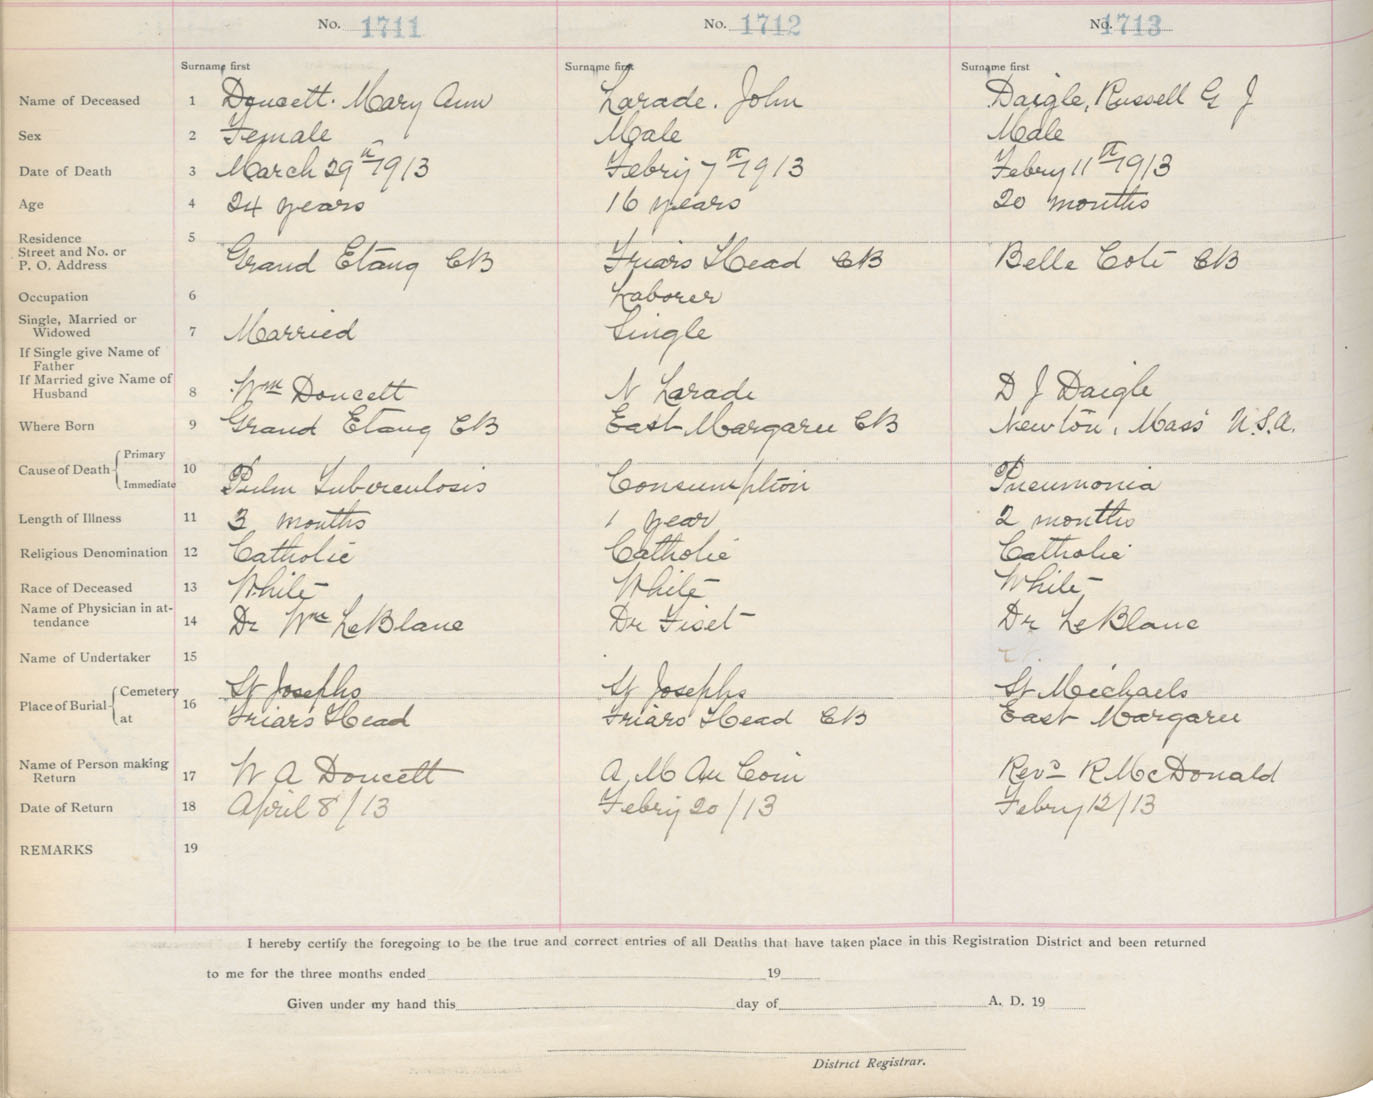 No. 1711 No. 1712 No. 1713
Surname first Surname first Surname first
Name of Deceased 1 Doucett. Mary Ann Larade. John Daigle, Russell G J
Sex 2 Female Male Male
Date of Death 3 March 29th 1913 Febry 7th 1913 Febry 11th 1913
Age 4 24 years 16 years 20 months
Residence 5
Street and No. or
P. O. Address Grand Etang CB Friars Head CB Belle Coté CB
Occupation 6 Laborer
Single, Married or
Widowed 7 Married Single
If Single give Name of
Father
If Married give Name of
Husband 8 Wm Doucett N Larade D J Daigle
Where Born 9 Grand Etang CB East Margaree CB Newton, Mass U.S.A.
Primary
Cause of Death 10
Immediate Pulm Tuberculosis Consumption Pneumonia
Length of Illness 11 3 months 1 year 2 months
Religious Denomination 12 Catholic Catholic Catholic
Race of Deceased 13 White White White
Name of Physician in at-
tendance 14 Dr Wm LeBlanc Dr Fiset Dr LeBlanc
Name of Undertaker 15
Cemetery St Josephs St Josephs St Michaels
Place of Burial 16
at Friars Head Friars Head CB East Margaree
Name of Person making
Return 17 W A Doucett A M Au Coin Revd R McDonald
Date of Return 18 April 8/13 Febry 20/13 Febry 12/13
REMARKS 19
I hereby certify the foregoing to be the true and correct entries of all Deaths that have taken place in this Registration District and been returned
to me for the three months ended 19
Given under my hand this day of A. D. 19
District Registrar.